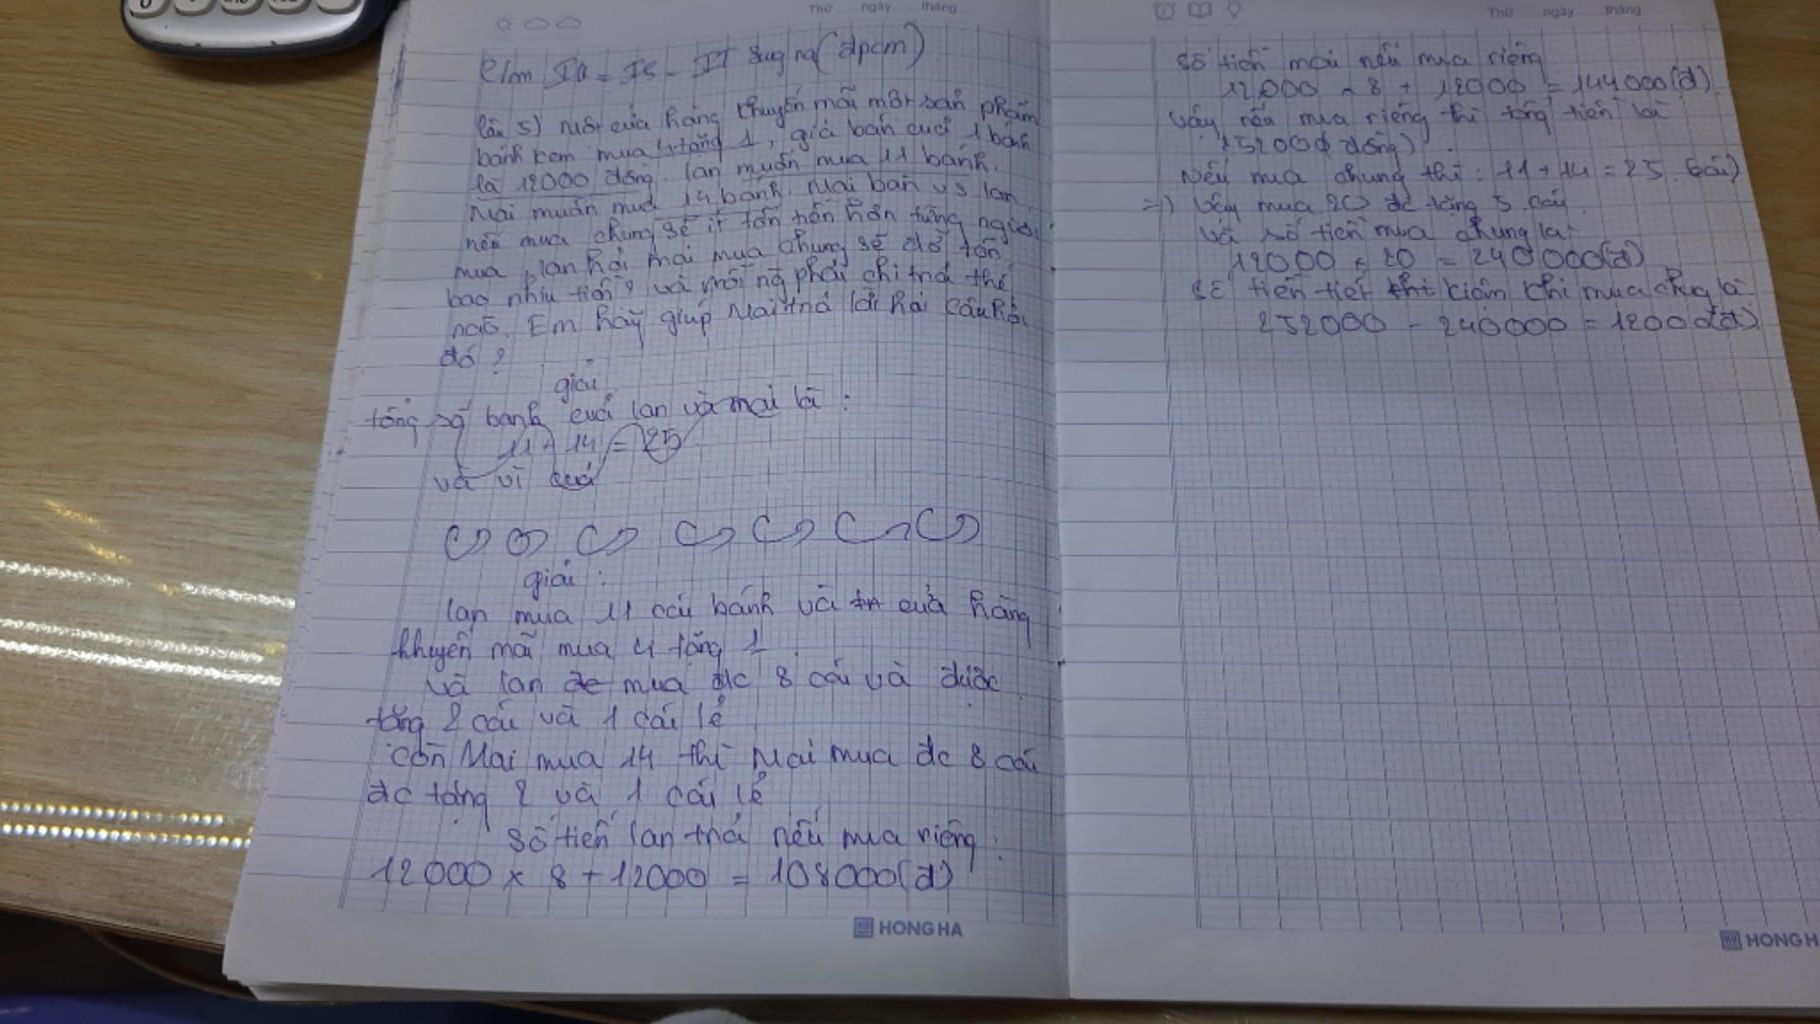 Thứ ngày tháng
(đpcm)
Câu 5) Một cửa hàng khuyến mãi một sản phẩm
bánh kem mua 4 tặng 1, giá bán cuả 1 bánh
là 12000 đồng. lan muốn mua 11 bánh.
Mai muốn mua 14 bánh. Mai bàn vs lan
nếu mua chung sẽ ít tốn hơn từng người
mua, lan hỏi mai mua chung sẽ đỡ tốn
bao nhiu tiền? và mỗi ng phải chi trả thế
nào. Em hãy giúp Mai trả lời hai câu hỏi
đó?
giải
tổng số banh cuả lan và mai là :
11 + 14 = 25
và vì cuả
giải :
lan mua 11 cái bánh và cửa hàng
khuyến mãi mua 4 tặng 1
và lan đc mua đc 8 cái và được
tặng 2 cái và 1 cái lẻ
còn Mai mua 14 thì Mai mua đc 8 cái
đc tặng 2 và 1 cái lẻ
số tiền lan trả nếu mua riêng :
12000 x 8 + 12000 = 108000(đ)
HONG HA
Thứ ngày tháng
số tiền mai nếu mua riêng
12000 x 8 + 12000 = 144000(đ)
vậy nếu mua riêng thì tổng tiền là
252000 đồng)
Nếu mua chung thì : 11 + 14 = 25 (cái)
=> vậy mua 20 đc tặng 5 cái
và số tiền mua chung là
12000 x 20 = 240000(đ)
số tiền tiết kiệm khi mua chug là
252000 - 240000 = 12000(đ)
HONG H